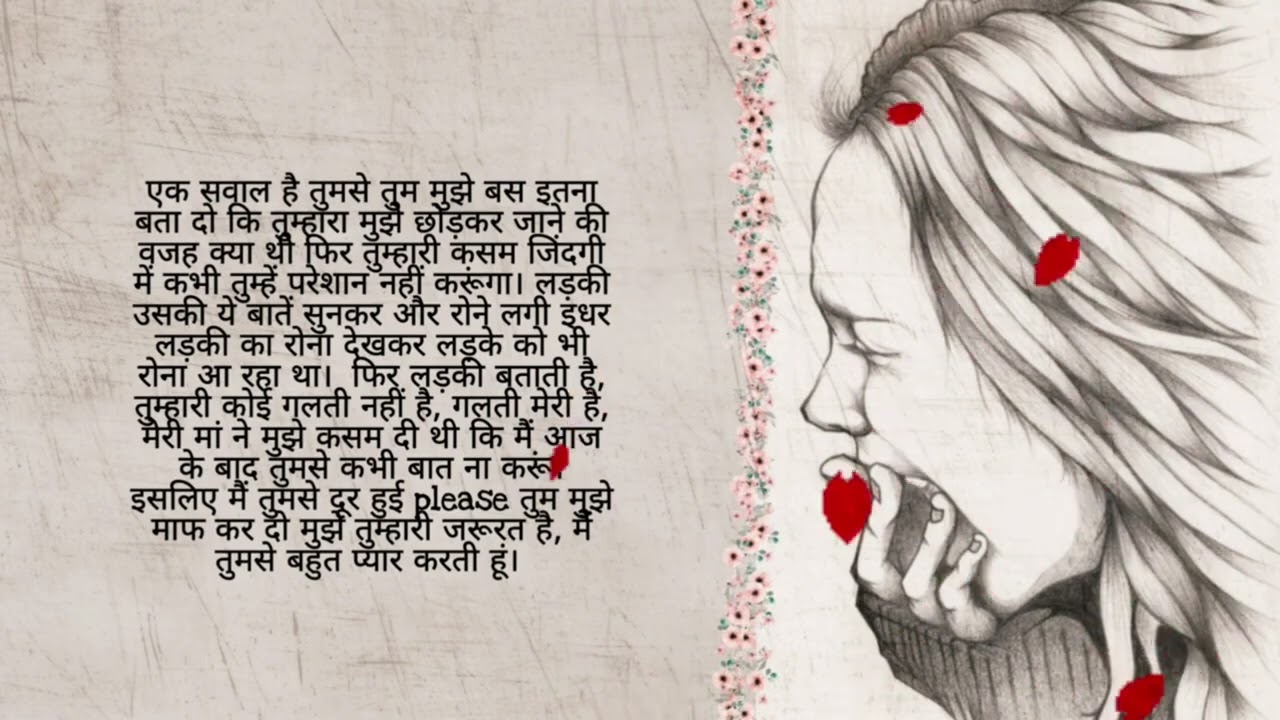 एक सवाल है तुमसे तुम मुझे बस इतना
बता दो कि तुम्हारा मुझे छोड़कर जाने की
वजह क्या थी फिर तुम्हारी कसम जिंदगी
में कभी तुम्हें परेशान नहीं करूंगा। लड़की
उसकी ये बातें सुनकर और रोने लगी इधर
लड़की का रोना देखकर लड़के को भी
रोना आ रहा था। फिर लड़की बताती है,
तुम्हारी कोई गलती नहीं है, गलती मेरी है,
मेरी मां ने मुझे कसम दी थी कि मैं आज
के बाद तुमसे कभी बात ना करूं
इसलिए मैं तुमसे दूर हुई please तुम मुझे
माफ कर दो मुझे तुम्हारी जरूरत है, मैं
तुमसे बहुत प्यार करती हूं।